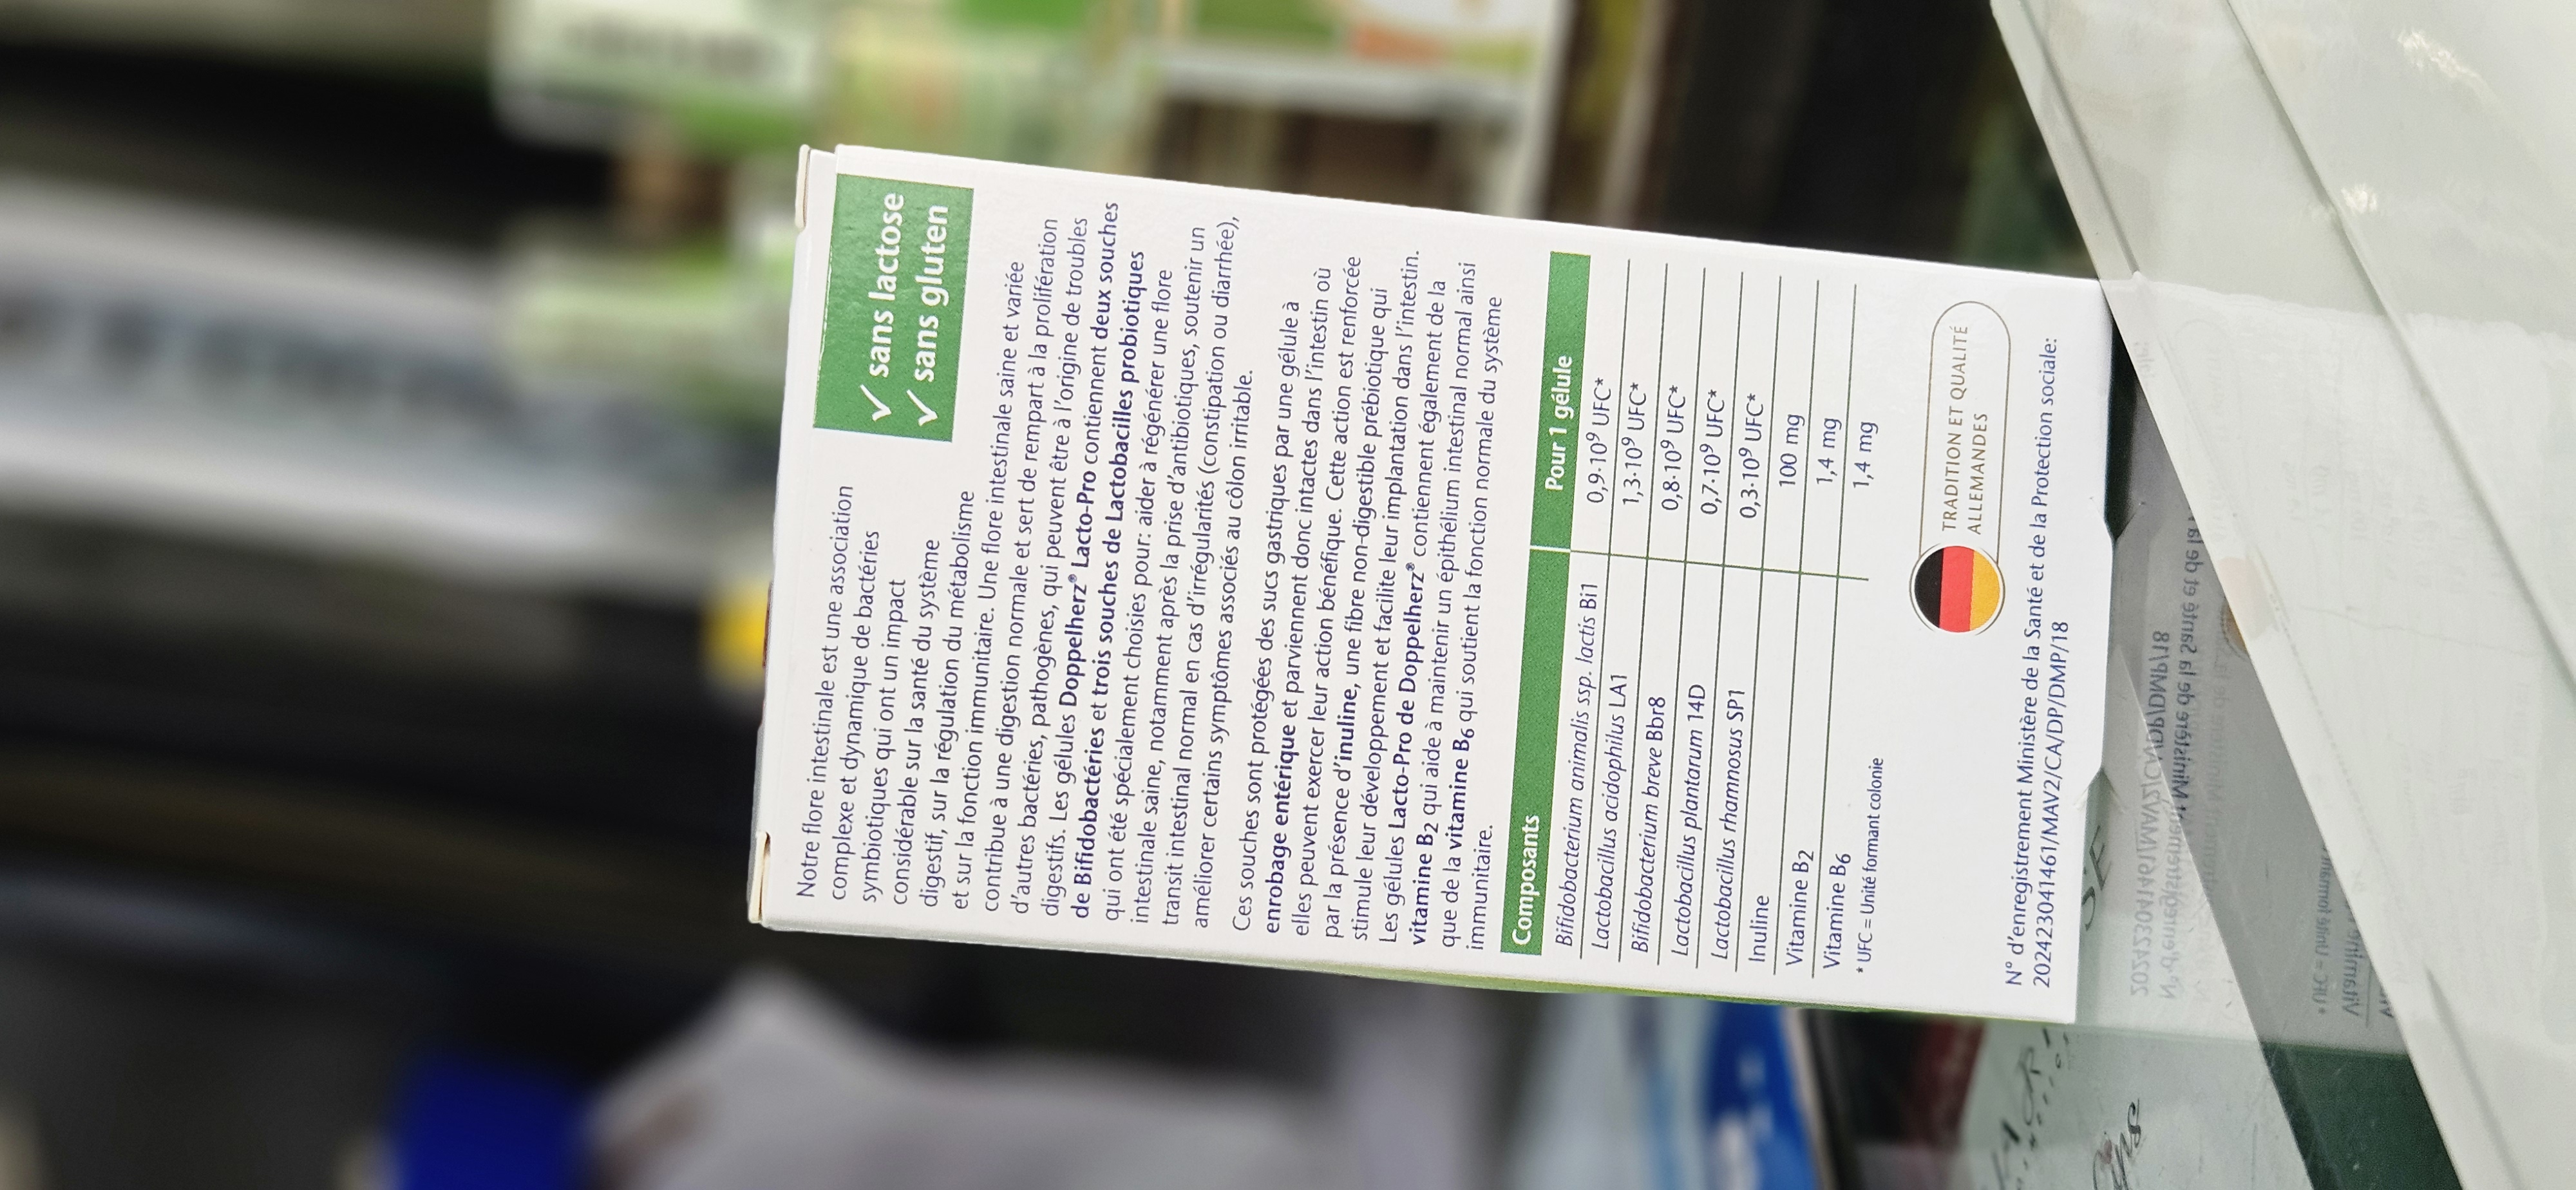 ✓ sans lactose
✓ sans gluten
Notre flore intestinale est une association
complexe et dynamique de bactéries
symbiotiques qui ont un impact
considérable sur la santé du système
digestif, sur la régulation du métabolisme
et sur la fonction immunitaire. Une flore intestinale saine et variée
contribue à une digestion normale et sert de rempart à la prolifération
d'autres bactéries, pathogènes, qui peuvent être à l'origine de troubles
digestifs. Les gélules Doppelherz® Lacto-Pro contiennent deux souches
de Bifidobactéries et trois souches de Lactobacilles probiotiques
qui ont été spécialement choisies pour: aider à régénérer une flore
intestinale saine, notamment après la prise d'antibiotiques, soutenir un
transit intestinal normal en cas d'irrégularités (constipation ou diarrhée),
améliorer certains symptômes associés au côlon irritable.
Ces souches sont protégées des sucs gastriques par une gélule à
enrobage entérique et parviennent donc intactes dans l'intestin où
elles peuvent exercer leur action bénéfique. Cette action est renforcée
par la présence d'inuline, une fibre non-digestible prébiotique qui
stimule leur développement et facilite leur implantation dans l'intestin.
Les gélules Lacto-Pro de Doppelherz® contiennent également de la
vitamine B2 qui aide à maintenir un épithélium intestinal normal ainsi
que de la vitamine B6 qui soutient la fonction normale du système
immunitaire.
Composants Pour 1 gélule
Bifidobacterium animalis ssp. lactis Bi1 0,9·10⁹ UFC*
Lactobacillus acidophilus LA1 1,3·10⁹ UFC*
Bifidobacterium breve Bbr8 0,8·10⁹ UFC*
Lactobacillus plantarum 14D 0,7·10⁹ UFC*
Lactobacillus rhamnosus SP1 0,3·10⁹ UFC*
Inuline 100 mg
Vitamine B2 1,4 mg
Vitamine B6 1,4 mg
* UFC = Unité formant colonie
TRADITION ET QUALITÉ
ALLEMANDES
N° d'enregistrement Ministère de la Santé et de la Protection sociale:
202423041461/MAV2/CA/DP/DMP/18